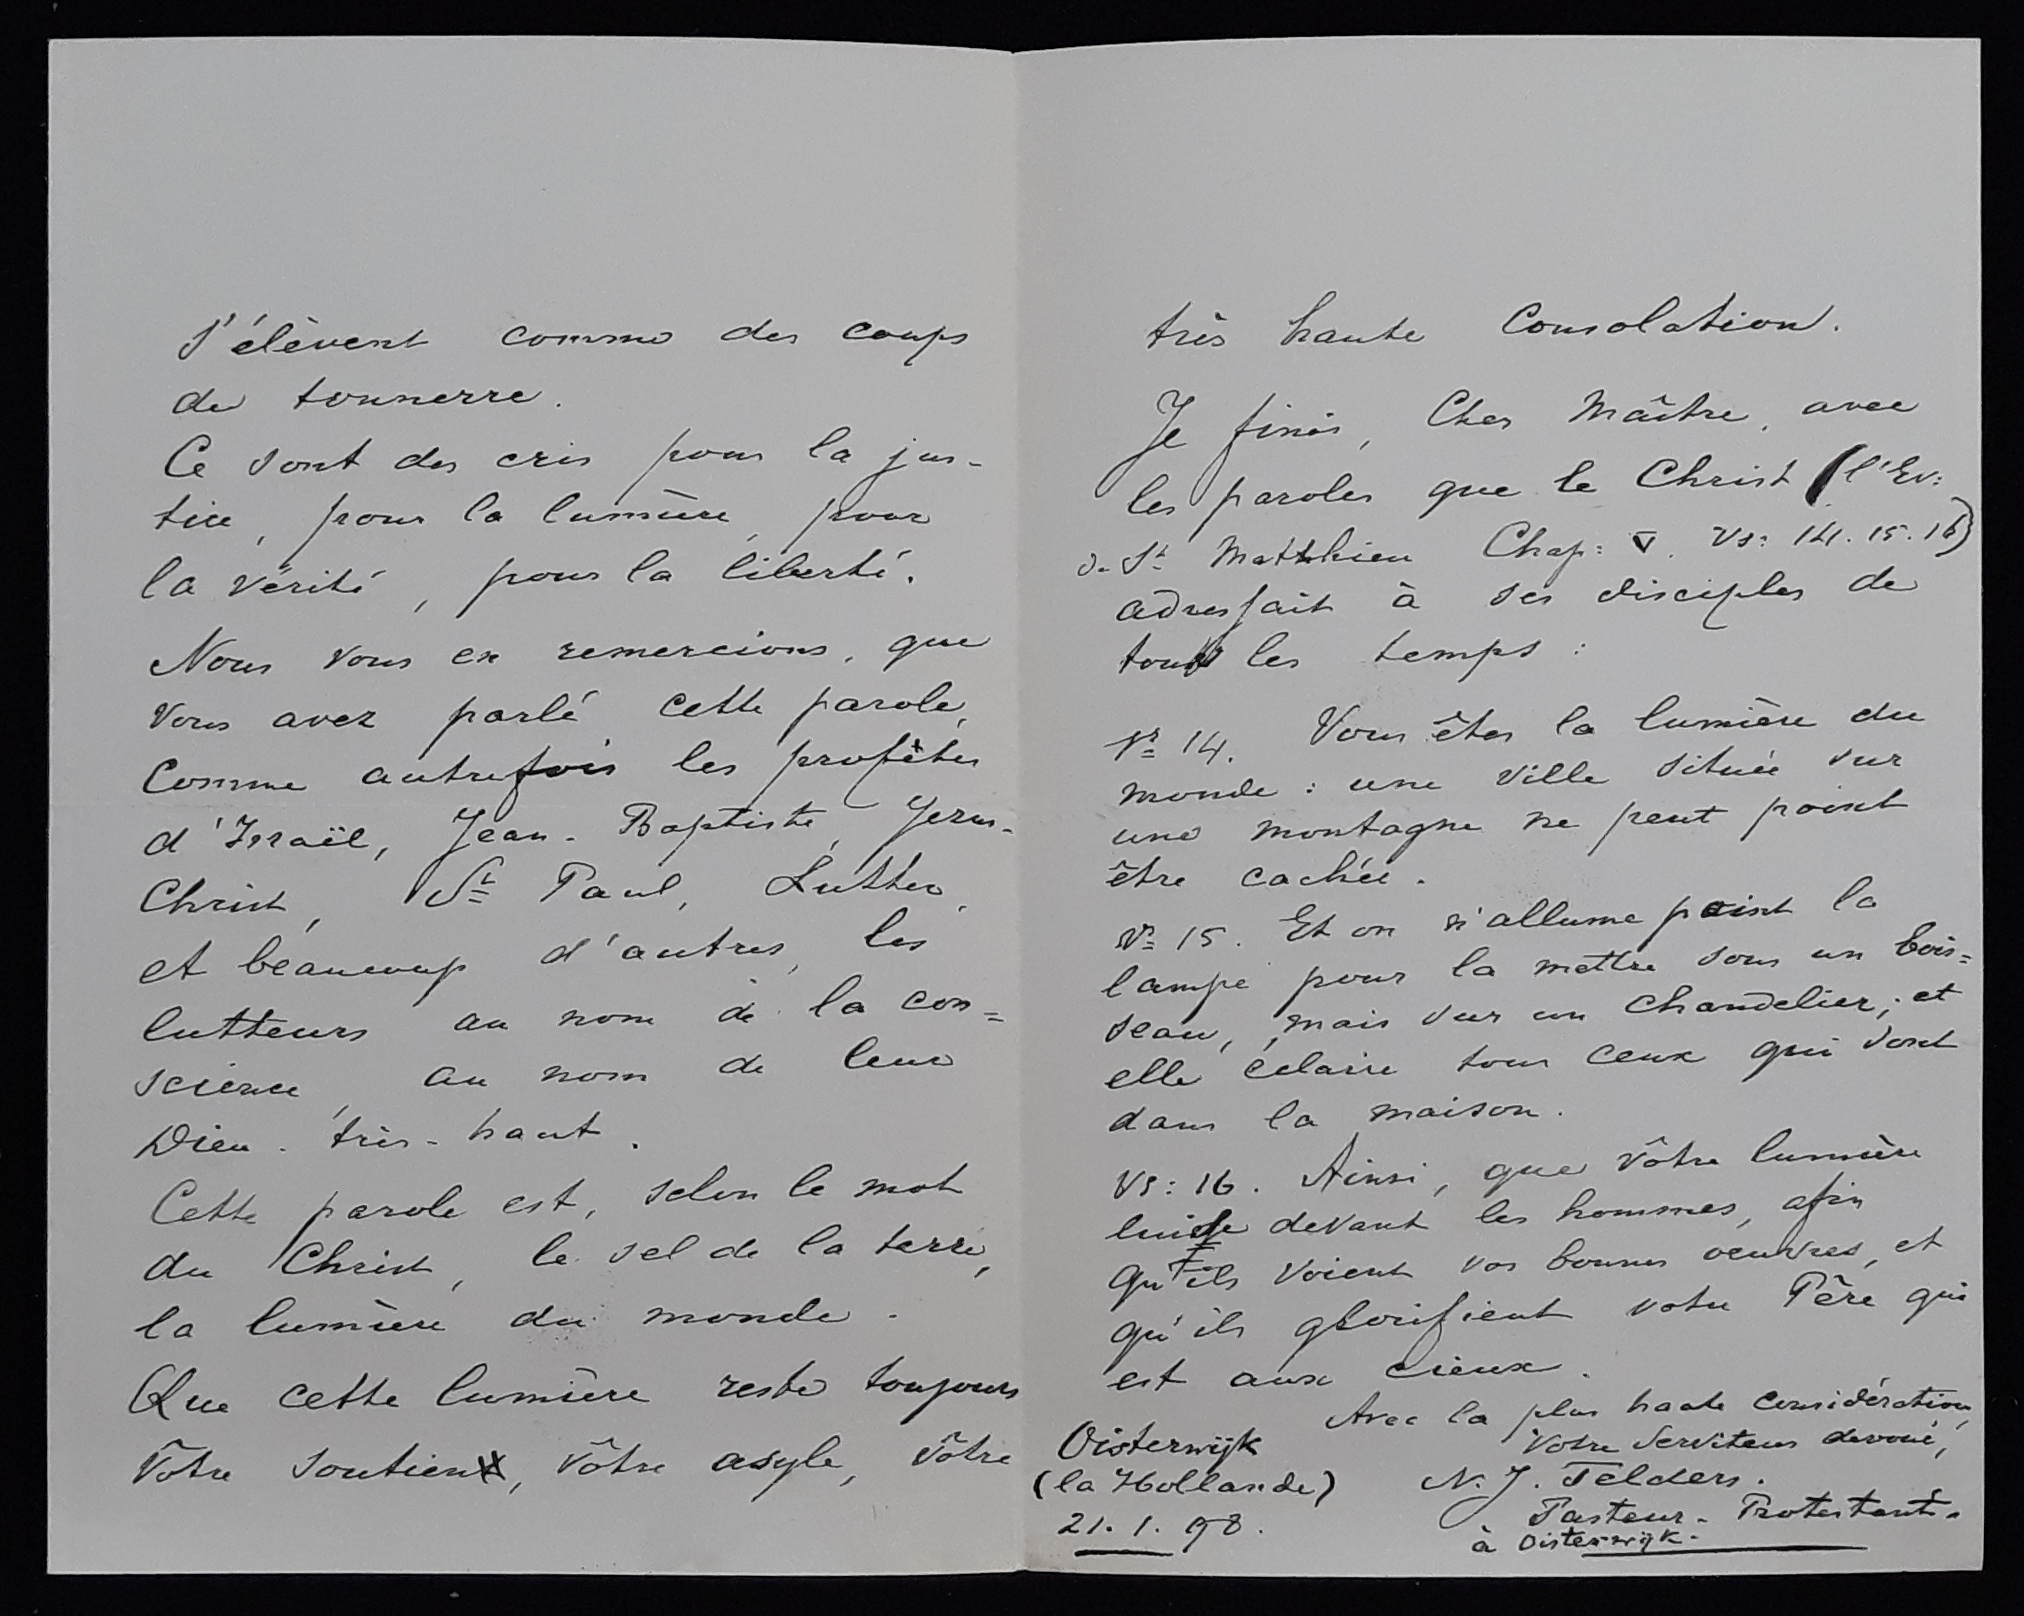 s'élèvent comme des coups
de tonnerre.
Ce sont des cris pour la jus-
tice, pour la lumière, pour
la vérité, pour la liberté.
Nous vous en remercions, que
vous avez parlé cette parole,
comme autrefois les profètes
d'Israël, Jean-Baptiste, Jesus-
Christ, St Paul, Luther,
et beaucoup d'autres, les
lutteurs au nom de la con=
science, au nom de leur
Dieu-très-haut.
Cette parole est, selon le mot
du Christ, le sel de la terre,
la lumière du monde.
Que cette lumière reste toujours
vôtre soutien, vôtre asyle, vôtre
très haute Consolation.
Je finis, Cher Maître, avec
les paroles que le Christ (l'Ev:
d. St Matthieu Chap: V. Vs: 14. 15. 16)
adressait à ses disciples de
tous les temps:
Vs 14. Vous êtes la lumière du
monde: une ville située sur
une montagne ne peut point
être cachée.
Vs 15. Et on n'allume point la
lampe pour la mettre sous un bois=
seau, mais sur un chandelier; et
elle éclaire tous ceux qui sont
dans la maison.
Vs: 16. Ainsi, que vôtre lumière
luise devant les hommes, afin
qu'ils voient vos bonnes oeuvres, et
qu'ils glorifient votre Père qui
est aux cieux.
Avec la plus haute considération,
Votre Serviteur devoué,
N. J. Telders.
Pasteur-Protestant.
à Oisterwijk.
Oisterwijk
(la Hollande)
21. 1. 98.